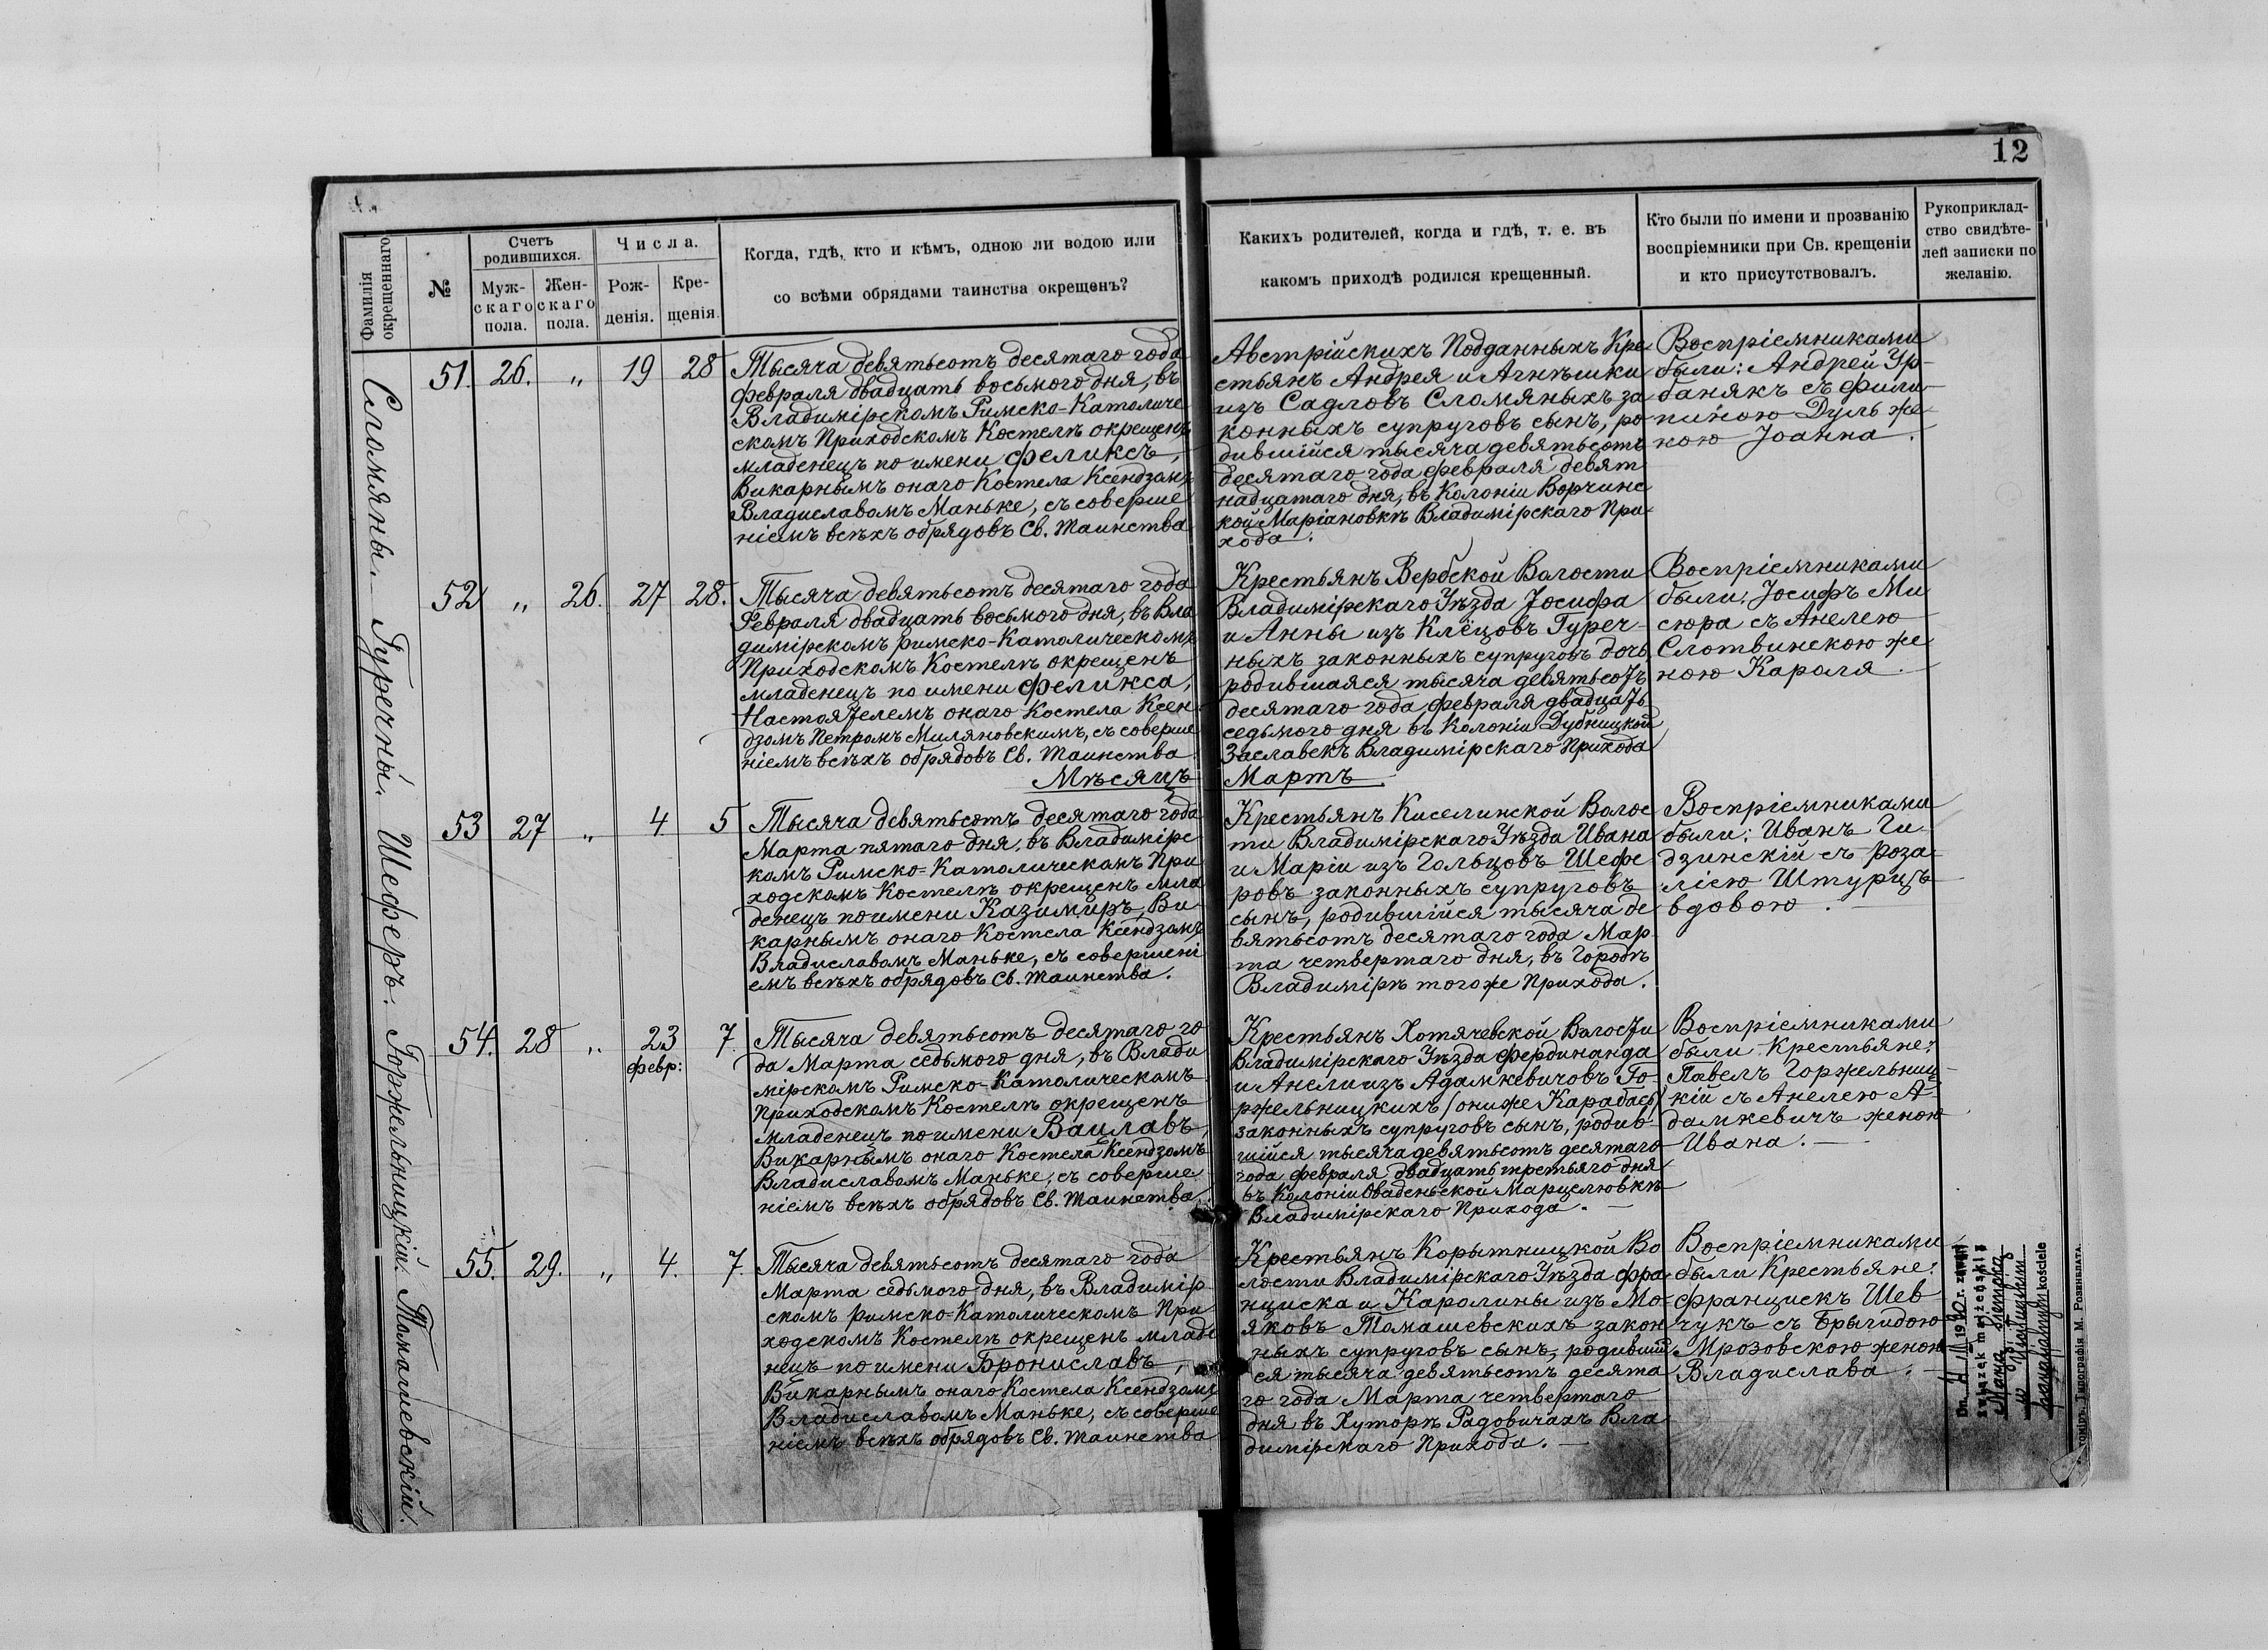 12
Фамилія
окрещеннаго
№
Счетъ
родившихся.
Муж-
скаго
пола.
Жен-
скаго
пола.
Числа.
Рож-
денія.
Кре-
щенія.
Когда, гдѣ, кто и кѣмъ, одною ли водою или
со всѣми обрядами таинства окрещенъ?
Какихъ родителей, когда и гдѣ, т. е. въ
какомъ приходѣ родился крещенный.
Кто были по имени и прозванію
воспріемники при Св. крещеніи
и кто присутствовалъ.
Рукоприклад-
ство свидѣте-
лей записки по
желанію.
Сломяны.
51. 26. „ 19 28
Тысяча девятьсотъ десятаго года
февраля двадцать восьмого дня, въ
Владимірскомъ Римско-Католиче
скомъ Приходскомъ Костелѣ окрещенъ
младенецъ по имени Феликсъ,
Викарнымъ онаго Костела Ксендзомъ
Владиславомъ Маньке, съ соверше
ніемъ всѣхъ обрядовъ Св. Таинства
Австрійскихъ Подданныхъ Кре
стьянъ Андрея и Агнѣшки
изъ Садловъ Сломяныхъ за
конныхъ супруговъ сынъ, ро
дившійся тысяча девятьсотъ
десятаго года февраля девят
надцатаго дня, въ Колоніи Ворчинс
кой Маріановкѣ Владимірскаго При
хода.
Воспріемниками
были: Андрей Ур-
банякъ съ Фили-
пиною Дуль же
ною Іоанна.
Гуречны.
52 „ 26. 27 28.
Тысяча девятьсотъ десятаго года
Февраля двадцать восьмого дня, въ Вла
димірскомъ римско-Католическомъ
Приходскомъ Костелѣ окрещенъ
младенецъ по имени Феликса,
Настоятелемъ онаго Костела Ксен
дзомъ Петромъ Миляновскимъ, съ соверше
ніемъ всѣхъ обрядовъ Св. Таинства
Крестьянъ Вербской Волости
Владимірскаго Уѣзда Іосифа
и Анны изъ Клёцовъ Гуреч-
ныхъ законныхъ супруговъ дочь
родившаяся тысяча девятьсотъ
десятаго года февраля двадцать
седьмого дня въ Колоніи Дубницкой
Заславекъ Владимірскаго Прихода
Воспріемниками
были: Іосифъ Ми
сюра съ Анелею
Слотвинскою же
ною Кароля.
Мѣсяцъ Мартъ.
Шеферъ.
53 27 „ 4 5
Тысяча девятьсотъ десятаго года
Марта пятаго дня, въ Владимірс
комъ Римско-Католическомъ При
ходскомъ Костелѣ окрещенъ мла
денецъ по имени Казимиръ, Ви-
карнымъ онаго Костела Ксендзомъ
Владиславомъ Маньке, съ совершені
емъ всѣхъ обрядовъ Св. Таинства.
Крестьянъ Киселинской Волос
ти Владимірскаго Уѣзда Ивана
и Маріи изъ Гольцовъ Шефе
ровъ законныхъ супруговъ
сынъ, родившійся тысяча де
вятьсотъ десятаго года Мар-
та четвертаго дня, въ Городѣ
Владимірѣ того же Прихода.
Воспріемниками
были: Иванъ Ги-
дзинскій съ Роза-
ліею Штурцъ
вдовою.
Горжельницкій.
54. 28 „ 23 7.
февр:
Тысяча девятьсотъ десятаго го
да Марта седьмого дня, въ Влади
мірскомъ Римско-Католическомъ
Приходскомъ Костелѣ окрещенъ
младенецъ по имени Вацлавъ,
Викарнымъ онаго Костела Ксендзомъ
Владиславомъ Маньке, съ соверше
ніемъ всѣхъ обрядовъ Св. Таинства.
Крестьянъ Хотячевской Волости
Владимірскаго Уѣзда Фердинанда
и Анели изъ Адамкевичовъ Го-
ржельницкихъ (они же Карабасы)
законныхъ супруговъ сынъ, родив-
шійся тысяча девятьсотъ десятаго
года февраля двадцать третьяго дня
въ Колоніи Оваденьской Марцелювкѣ
Владимірскаго Прихода.
Воспріемниками
были Крестьяне:
Павелъ Горжельниц-
кій съ Анелею А-
дамкевичъ женою
Ивана.
Томашевскій.
55. 29. „ 4. 7.
Тысяча девятьсотъ десятаго года
Марта седьмого дня, въ Владимір
скомъ римско-Католическомъ При
ходскомъ Костелѣ окрещенъ младе
нецъ по имени Брониславъ,
Викарнымъ онаго Костела Ксендзомъ
Владиславомъ Маньке, съ соверше
ніемъ всѣхъ обрядовъ Св. Таинства
Крестьянъ Корытницкой Во
лости Владимірскаго Уѣзда Фра
нциска и Каролины изъ Мо-
яковъ Томашевскихъ закон
ныхъ супруговъ сынъ, родивший
ся тысяча девятьсотъ десята
го года Марта четвертаго
дня въ Хуторѣ Радовичахъ Вла
димірскаго Прихода.
Воспріемниками
были Крестьяне:
Францискъ Шев-
чукъ съ Брыгидою
Мрозовскою женою
Владислава.
Dn. 19 r. zawarł
związek małżeński z
w
kościele
Типографія М. Розенблата.